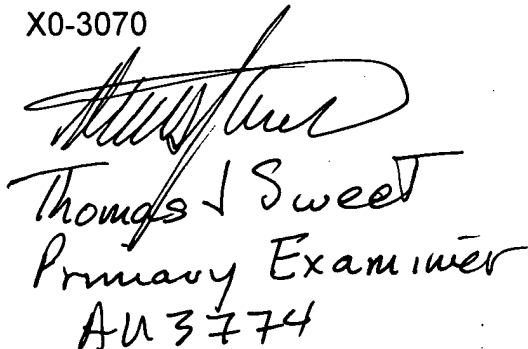 X0-3070
Thomas J Sweet
Primary Examiner
AU 3774